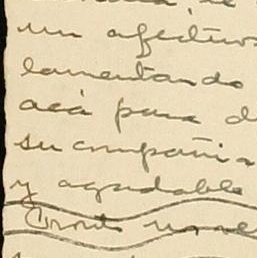 un afectuos
lamentando
acá para d
su compañia
y agradable